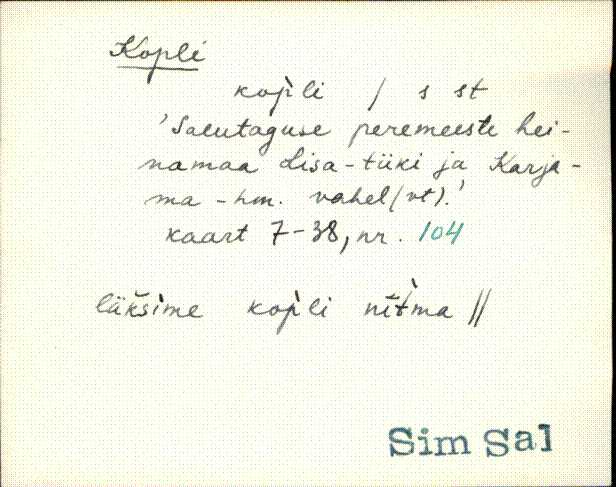 Kopli
kop̀li / s st
'Salutaguse peremeeste hei-
namaa Lisa-tüki ja Karja-
ma-hm. vahel (vt).'
kaart 7-38, nr. 104
läk̆sìme kop̀li nĭt̀ma //
Sim Sal